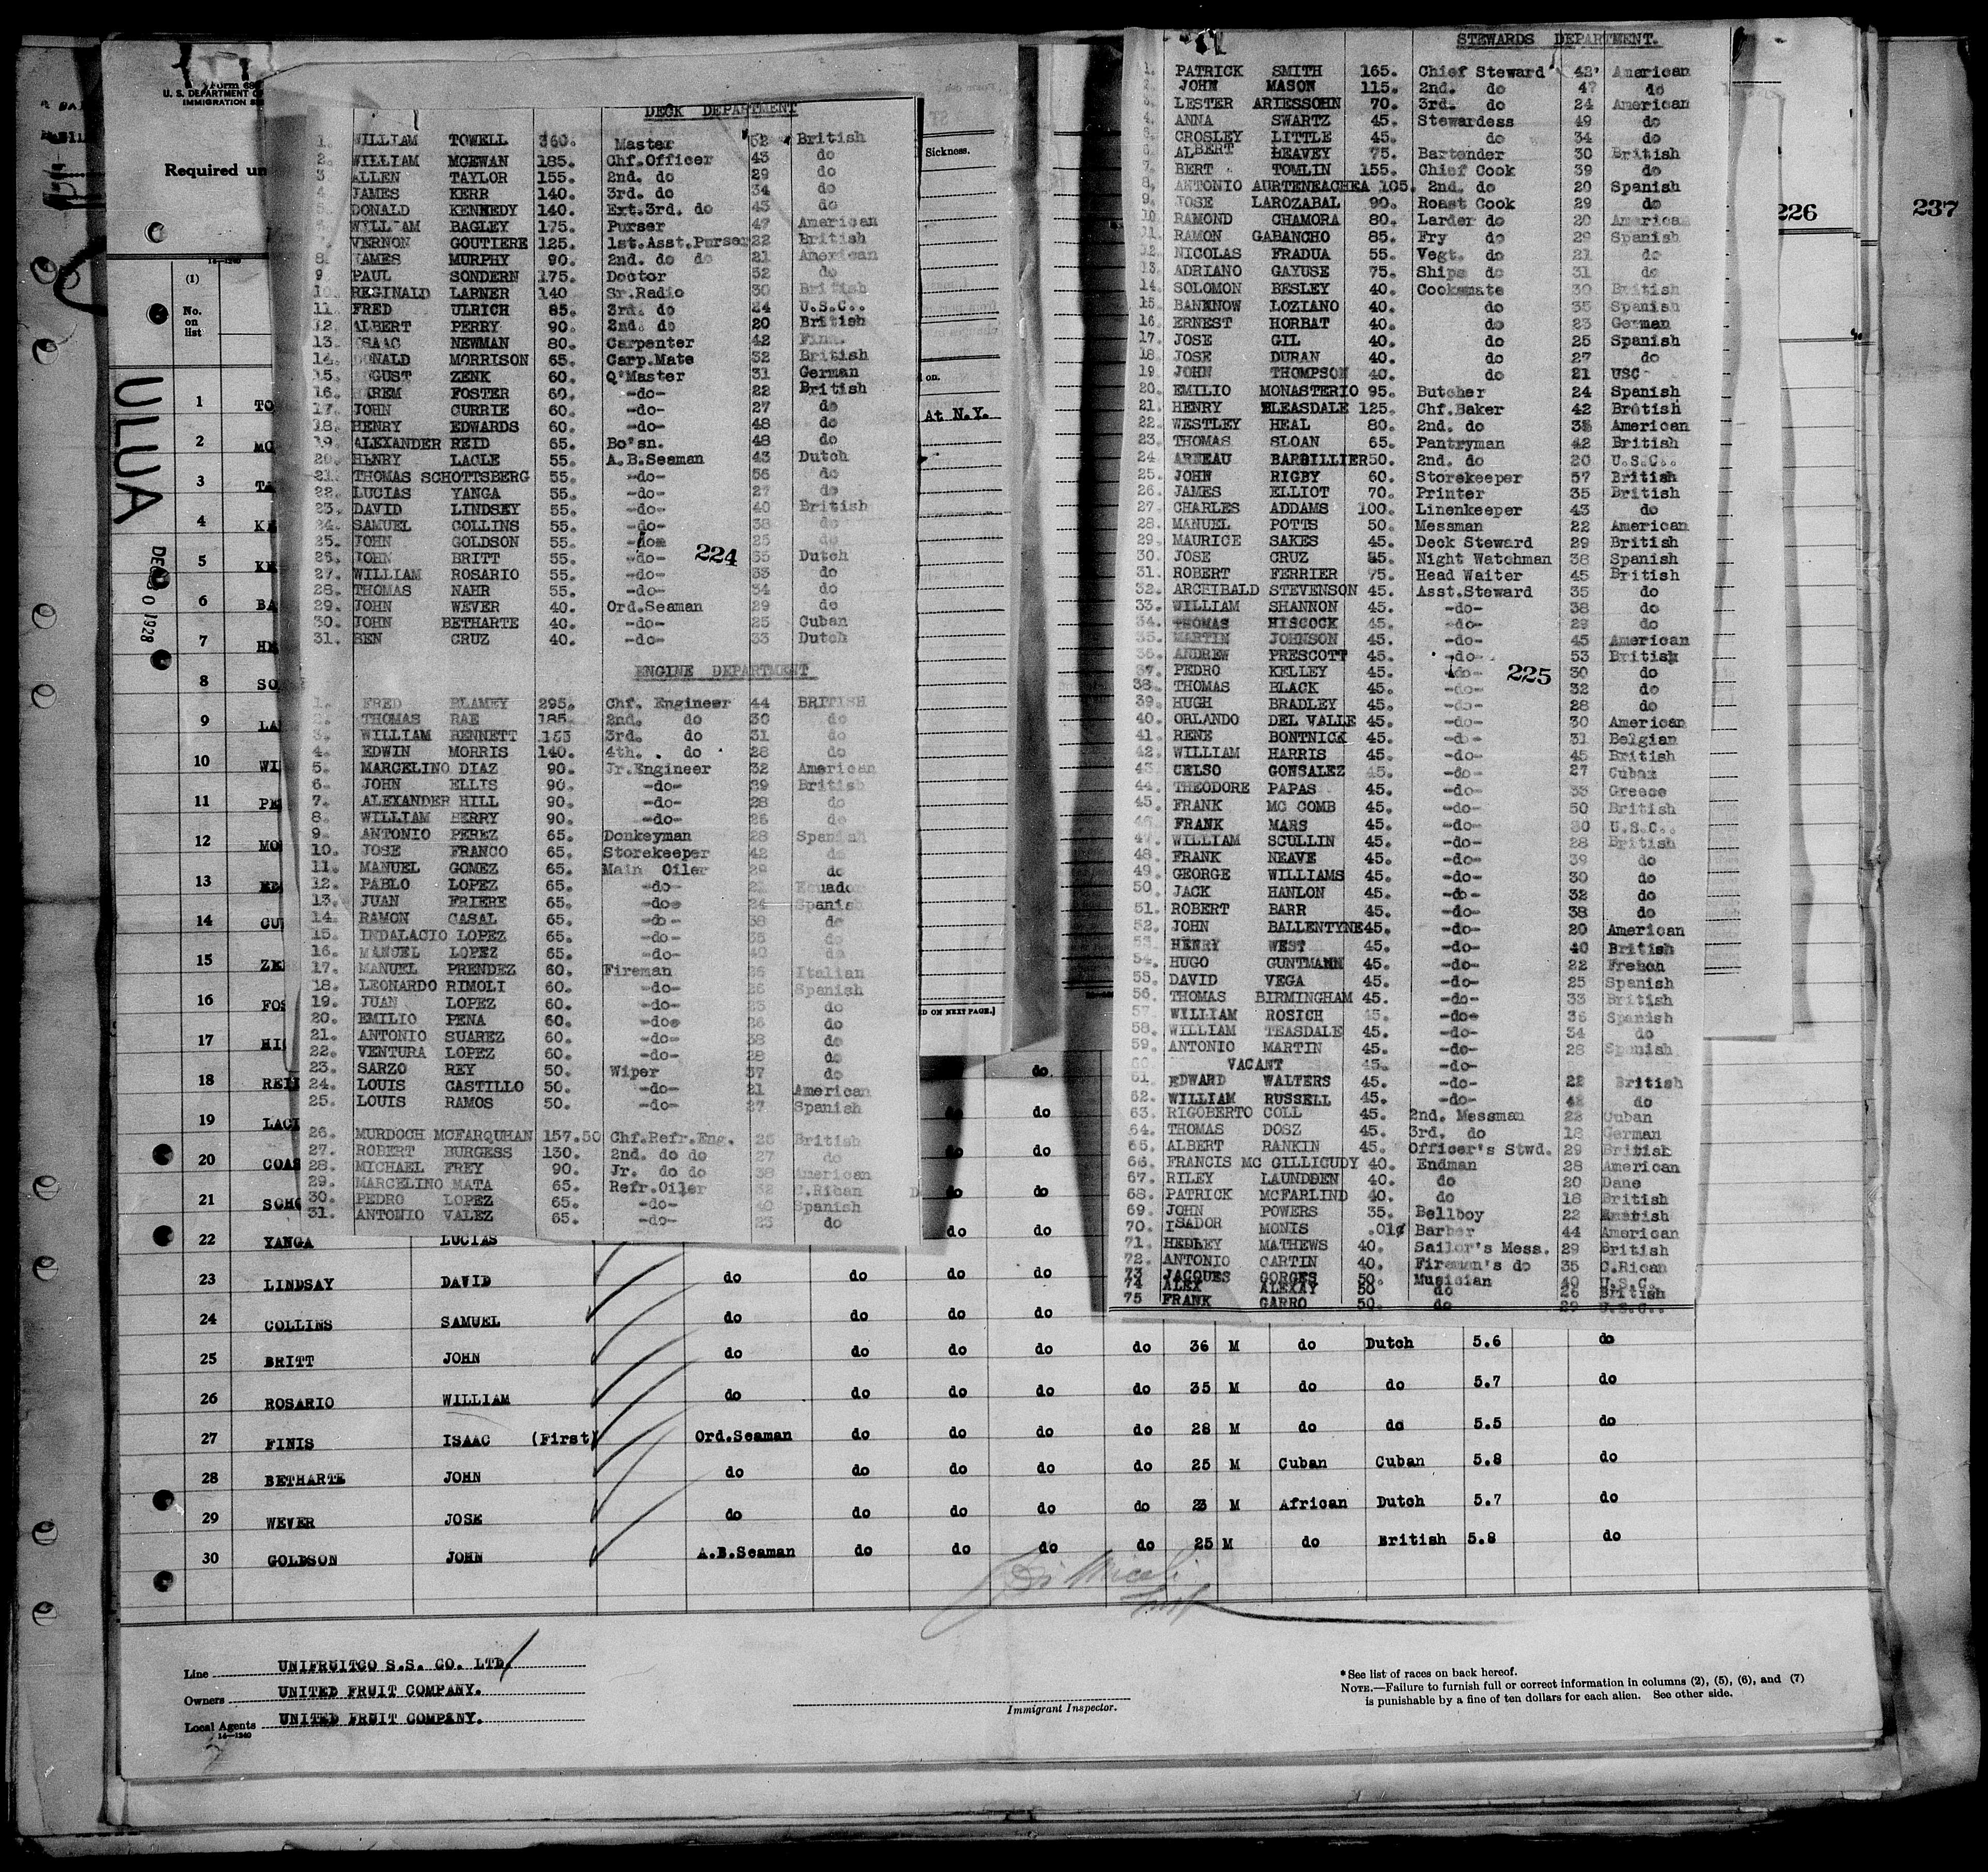 Form 68
U. S. DEPARTMENT O
IMMIGRATION SE
Required un
(1)
No.
on
list
ULUA
DEC 30 1928
DECK DEPARTMENT
1. WILLIAM TOWELL 360. Master 52 British
2. WILLIAM MCEWAN 185. Chf.Officer 43 do
3 ALLEN TAYLOR 155. 2nd. do 29 do
4 JAMES KERR 140. 3rd. do 34 do
5. DONALD KENNEDY 140. Ext.3rd. do 43 do
WILLIAM BAGLEY 175. Purser 47 American
7. VERNON GOUTIERE 125. 1st.Asst.Purser 22 British
8. JAMES MURPHY 90. 2nd. do do 21 American
9. PAUL SONDERN 175. Doctor 52 do
10. REGINALD LARNER 140 Sr.Radio 30 British
11. FRED ULRICH 85. 3rd. do 24 U.S.C..
12. ALBERT PERRY 90. 2nd. do 20 British
13. ISAAC NEWMAN 80. Carpenter 42 Finn.
14. DONALD MORRISON 65. Carp.Mate 32 British
15. UGUST ZENK 60. Q'Master 31 German
16. REM FOSTER 60. -do- 22 British
17. JOHN CURRIE 60. -do- 27 do
18. HENRY EDWARDS 60. -do- 48 do
19. ALEXANDER REID 65. Bo'sn. 48 do
20. HENRY LACLE 55. A.B.Seaman 43 Dutch
21. THOMAS SCHOTTSBERG 55. -do- 56 do
22. LUCIAS YANGA 55. -do- 27 do
23. DAVID LINDSEY 55. -do- 40 British
24. SAMUEL COLLINS 55. -do- 38 do
25. JOHN GOLDSON 55. -do- 25 do
224
26. JOHN BRITT 55. -do- 35 Dutch
27. WILLIAM ROSARIO 55. -do- 33 do
28. THOMAS NAHR 55. -do- 34 do
29. JOHN WEVER 40. Ord.Seaman 29 do
30. JOHN BETHARTE 40. -do- 25 Cuban
31. BEN CRUZ 40. -do- 33 Dutch
ENGINE DEPARTMENT
1. FRED BLAMEY 295. Chf. Engineer 44 BRITISH
2. THOMAS RAE 185. 2nd. do 36 do
3. WILLIAM BENNETT 155 3rd. do 31 do
4. EDWIN MORRIS 140. 4th. do 28 do
5. MARCELINO DIAZ 90. Jr.Engineer 32 American
6. JOHN ELLIS 90. -do- 39 British
7. ALEXANDER HILL 90. -do- 28 do
8. WILLIAM BERRY 90. -do- 26 do
9. ANTONIO PEREZ 65. Donkeyman 28 Spanish
10. JOSE FRANCO 65. Storekeeper 42 do
11. MANUEL GOMEZ 65. Main Oiler 29 do
12. PABLO LOPEZ 65. -do- Ecuador
13. JUAN FRIERE 65. -do- 26 Spanish
14. RAMON CASAL 65. -do- 38 do
15. INDALACIO LOPEZ 65. -do- 35 do
16. MANUEL LOPEZ 65. -do- 40 do
17. MANUEL PRENDEZ 60. Fireman 36 Italian
18. LEONARDO RIMOLI 60. -do- 26 Spanish
19. JUAN LOPEZ 60. -do- 23 do
20. EMILIO PENA 60. -do- 26 do
21. ANTONIO SUAREZ 60. -do- 38 do
22. VENTURA LOPEZ 60. -do- 28 do
23. SARZO REY 50. Wiper 37 do
24. LOUIS CASTILLO 50. -do- 21 American
25. LOUIS RAMOS 50. -do- 27 Spanish
26. MURDOCH MCFARQUHAN 157.50 Chf.Refr.Eng. 26 British
27. ROBERT BURGESS 130. 2nd. do do 27 do
28. MICHAEL FREY 90. Jr. do do 38 American
29. MARCELINO MATA 65. Refr.Oiler 32 C.Rican
30. PEDRO LOPEZ 65. -do- 40 Spanish
31. ANTONIO VALEZ 65. -do- 23 do
Sickness.
on.
At N.Y.
D ON NEXT PAGE.]
STEWARDS DEPARTMENT.
1. PATRICK SMITH 165. Chief Steward 42 American
2. JOHN MASON 115. 2nd. do 47 do
3. LESTER ARIESSOHN 70. 3rd. do 24 American
4. ANNA SWARTZ 45. Stewardess 49 do
5. CROSLEY LITTLE 45. do 34 do
6. ALBERT HEAVEY 75. Bartender 30 British
7. BERT TOMLIN 155. Chief Cook 39 do
8. ANTONIO AURTENEACHEA 105. 2nd. do 20 Spanish
9. JOSE LAROZABAL 90. Roast Cook 29 do
10. RAMOND CHAMORA 80. Larder do 20 American
11. RAMON GABANCHO 85. Fry do 29 Spanish
12. NICOLAS FRADUA 55. Vegt. do 21 do
13. ADRIANO GAYUSE 75. Ships do 31 do
14. SOLOMON BESLEY 40. Cooksmate 30 British
15. BANKNOW LOZIANO 40. do 35 Spanish
16. ERNEST HORBAT 40. do 23 German
17. JOSE GIL 40. do 25 Spanish
18. JOSE DURAN 40. do 27 do
19. JOHN THOMPSON 40. do 21 USC
20. EMILIO MONASTERIO 95. Butcher 24 Spanish
21. HENRY BLEASDALE 125. Chf.Baker 42 British
22. WESTLEY HEAL 80. 2nd. do 35 American
23. THOMAS SLOAN 65. Pantryman 42 British
24. ARNEAU BARBILLIER 50. 2nd. do 20 U.S.C..
25. JOHN RIGBY 60. Storekeeper 57 British
26. JAMES ELLIOT 70. Printer 35 British
27. CHARLES ADDAMS 100. Linenkeeper 43 do
28. MANUEL POTTS 50. Messman 22 American
29. MAURICE SAKES 45. Deck Steward 29 British
30. JOSE CRUZ 55. Night Watchman 38 Spanish
31. ROBERT FERRIER 75. Head Waiter 45 British
32. ARCHIBALD STEVENSON 45. Asst.Steward 35 do
33. WILLIAM SHANNON 45. -do- 38 do
34. THOMAS HISCOCK 45. -do- 29 do
35. MARTIN JOHNSON 45. -do- 45 American
36. ANDREW PRESCOTT 45. -do- 53 British
37. PEDRO KELLEY 45. -do- 30 do
225
38. THOMAS BLACK 45. -do- 32 do
39. HUGH BRADLEY 45. -do- 28 do
40. ORLANDO DEL VALLE 45. -do- 30 American
41. RENE BONTNICK 45. -do- 31 Belgian
42. WILLIAM HARRIS 45. -do- 45 British
43. CELSO GONSALEZ 45. -do- 27 Cuban
44. THEODORE PAPAS 45. -do- 33 Greece
45. FRANK MC COMB 45. -do- 50 British
46. FRANK MARS 45. -do- 30 U.S.C..
47. WILLIAM SCULLIN 45. -do- 28 British
48. FRANK NEAVE 45. -do- 39 do
49. GEORGE WILLIAMS 45. -do- 30 do
50. JACK HANLON 45. -do- 32 do
51. ROBERT BARR 45. -do- 38 do
52. JOHN BALLENTYNE 45. -do- 20 American
53. HENRY WEST 45. -do- 40 British
54. HUGO GUNTMANN 45. -do- 22 French
55. DAVID VEGA 45. -do- 25 Spanish
56. THOMAS BIRMINGHAM 45. -do- 33 British
57. WILLIAM ROSICH 45. -do- 36 Spanish
58. WILLIAM TEASDALE 45. -do- 34 do
59. ANTONIO MARTIN 45. -do- 28 Spanish
60. VACANT 45. -do-
61. EDWARD WALTERS 45. -do- 22 British
62. WILLIAM RUSSELL 45. -do- 42 do
63. RIGOBERTO COLL 45. 2nd. Messman 23 Cuban
64. THOMAS DOSZ 45. 3rd. do 18 German
65. ALBERT RANKIN 45. Officer's Stwd. 29 British
66. FRANCIS MC GILLICUDY 40. Endman 28 American
67. RILEY LAUNDDEN 40. do 20 Dane
68. PATRICK MCFARLIND 40. do 18 British
69. JOHN POWERS 35. Bellboy 22
70. ISADOR MONIS .01¢ Barber 44 American
71. HEDLEY MATHEWS 40. Sailor's Mess. 29 British
72. ANTONIO CARTIN 40. Fireman's do 35 C.Rican
73 JACQUES GORGES 50. Musician 40 U.S.C.
74 ALEX ALEXAY 50 do 26 British
75 FRANK GARRO 50. do 29 U.S.C..
226
237
1 TO
2 MC
3 TA
4 KE
5 KE
6 BA
7 HE
8 SO
9 LA
10 WI
11 PE
12 MO
13
14 CU
15 ZE
16 FOS
17 HI
18 REI do
19 LAC do do
20 COA do do
21 SCHO do do
22 YANGA LUCIAS do do
23 LINDSAY DAVID do do do do
24 COLLINS SAMUEL do do do do
25 BRITT JOHN do do do do do 36 M do Dutch 5.6 do
26 ROSARIO WILLIAM do do do do do 35 M do do 5.7 do
27 FINIS ISAAC (First) Ord.Seaman do do do do 28 M do do 5.5 do
28 BETHARTE JOHN do do do do do 25 M Cuban Cuban 5.8 do
29 WEVER JOSE do do do do do 23 M African Dutch 5.7 do
30 GOLDSON JOHN A.B.Seaman do do do do 25 M do British 5.8 do
Line UNIFRUITCO S.S. CO. LTD.
Owners UNITED FRUIT COMPANY.
Local Agents UNITED FRUIT COMPANY.
Immigrant Inspector.
*See list of races on back hereof.
NOTE.—Failure to furnish full or correct information in columns (2), (5), (6), and (7)
is punishable by a fine of ten dollars for each alien. See other side.